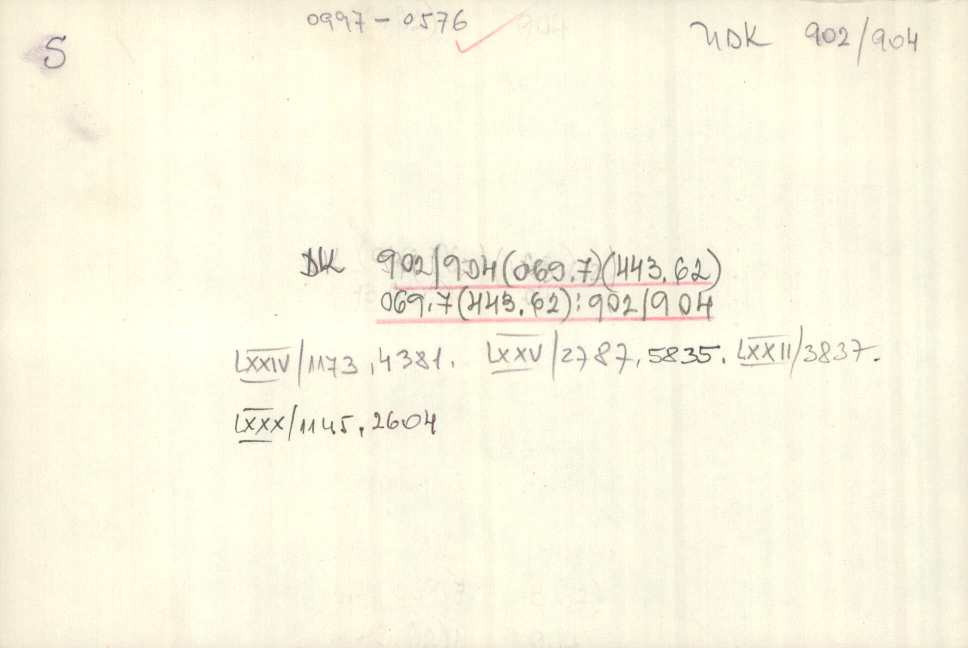 0997-0576
UDK 902/904
S
DK 902/904(069.7)(443.62)
069.7(443.62):902/904
LXXIV/1173, 4381. LXXV/2787, 5835. LXXII/3837.
LXXX/1145, 2604